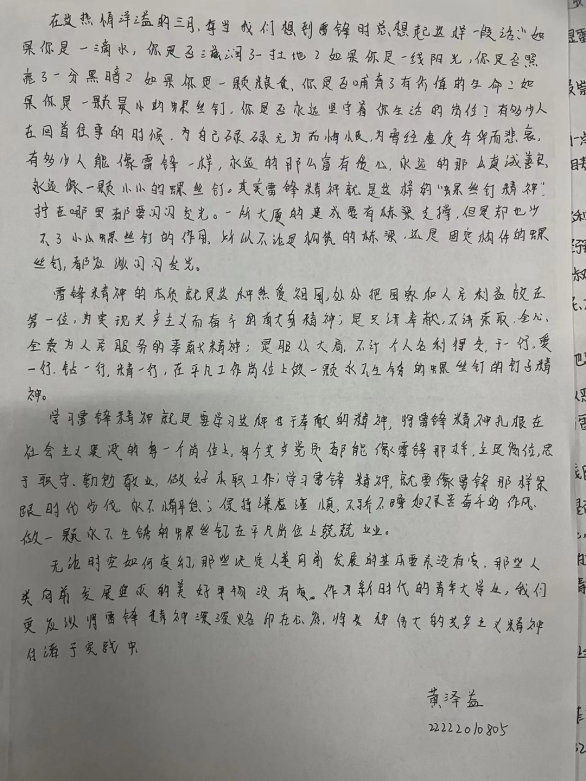 在这热情洋溢的三月,每当我们想到雷锋时总想起这样一段话:"如
果你是一滴水,你是否滋润了一寸土地?如果你是一线阳光,你是否照
亮了一分黑暗?如果你是一颗粮食,你是否哺育了有价值的生命?如
果你是一颗最小的螺丝钉,你是否永远坚守着你生活的岗位?有多少人
在回首往事的时候,为自己碌碌无为而悔恨,为曾经虚度年华而悲哀,
有多少人能像雷锋一样,永远的那么富有爱心,永远的那么真诚善良,
永远做一颗小小的螺丝钉。其实雷锋精神就是这样的"螺丝钉精神"
拧在哪里都要闪闪发光。一所大厦的建成要有栋梁支撑,但是却也少
不了小小螺丝钉的作用,所以不论是钢筑的栋梁,还是固定构件的螺
丝钉,都应做闪闪发光。
雷锋精神的本质就是这种热爱祖国,处处把国家和人民利益放在
第一位,为实现共产主义而奋斗的献身精神;是只讲奉献,不讲索取,全心
全意为人民服务的奉献精神;是服从大局,不计个人名利得失,干一行,爱
一行,钻一行,精一行,在平凡工作岗位上做一颗永不生锈的螺丝钉的钉子精
神。
学习雷锋精神就是要学习这种甘于奉献的精神,将雷锋精神扎根在
社会主义建设的每一个岗位上,每个共产党员都能像雷锋那样,立足岗位,忠
于职守、勤勉敬业,做好本职工作;学习雷锋精神,就要像雷锋那样紧
跟时代步伐,永不懈怠;保持谦虚谨慎,不骄不躁和艰苦奋斗的作风,
做一颗永不生锈的螺丝钉在平凡岗位上兢兢业业。
无论时空如何变幻,那些决定人类向前发展的基本要素没有变,那些人
类向前发展追求的美好事物没有变。作为新时代的青年大学生,我们
更应该将雷锋精神深深烙印在心底,将这种伟大的共产主义精神
付诸于实践中
黄泽益
22222010805